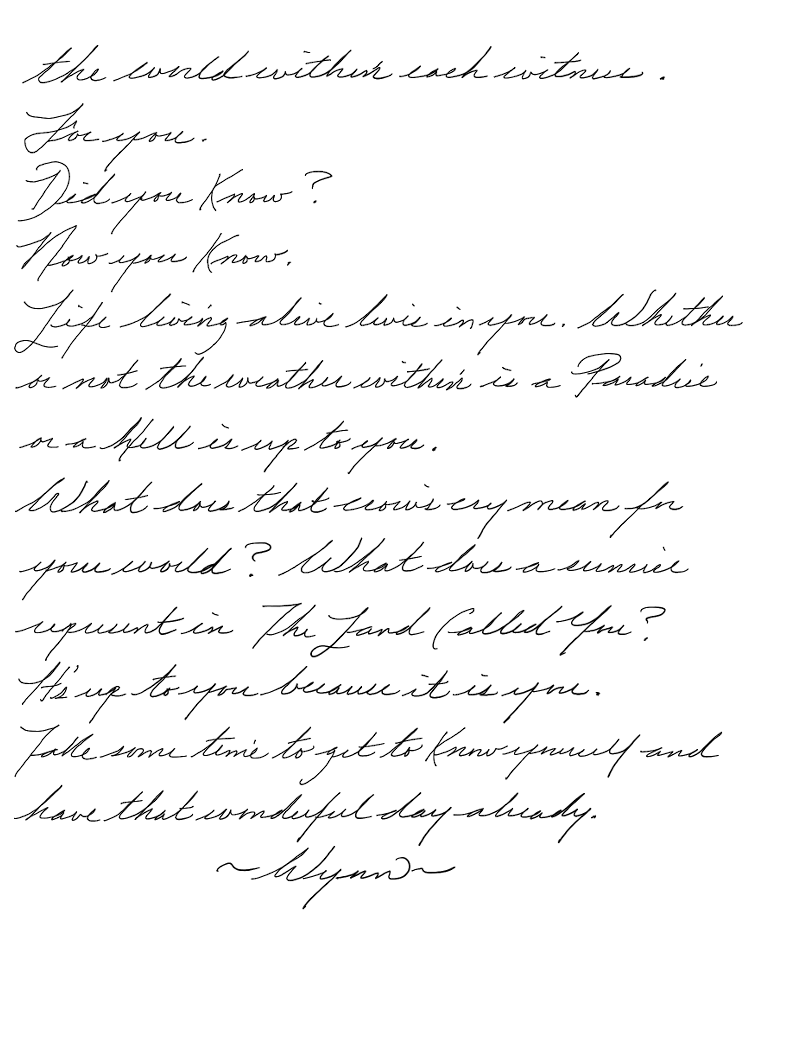 the world within each witness.
For you.
Did you Know?
Now you Know.
Life living alive lives in you. Whether
or not the weather within is a Paradise
or a Hell is up to you.
What does that crow's cry mean for
your world? What does a sunrise
represent in The Land Called You?
It's up to you because it is you.
Take some time to get to Know yourself and
have that wonderful day already.
~Wynn~